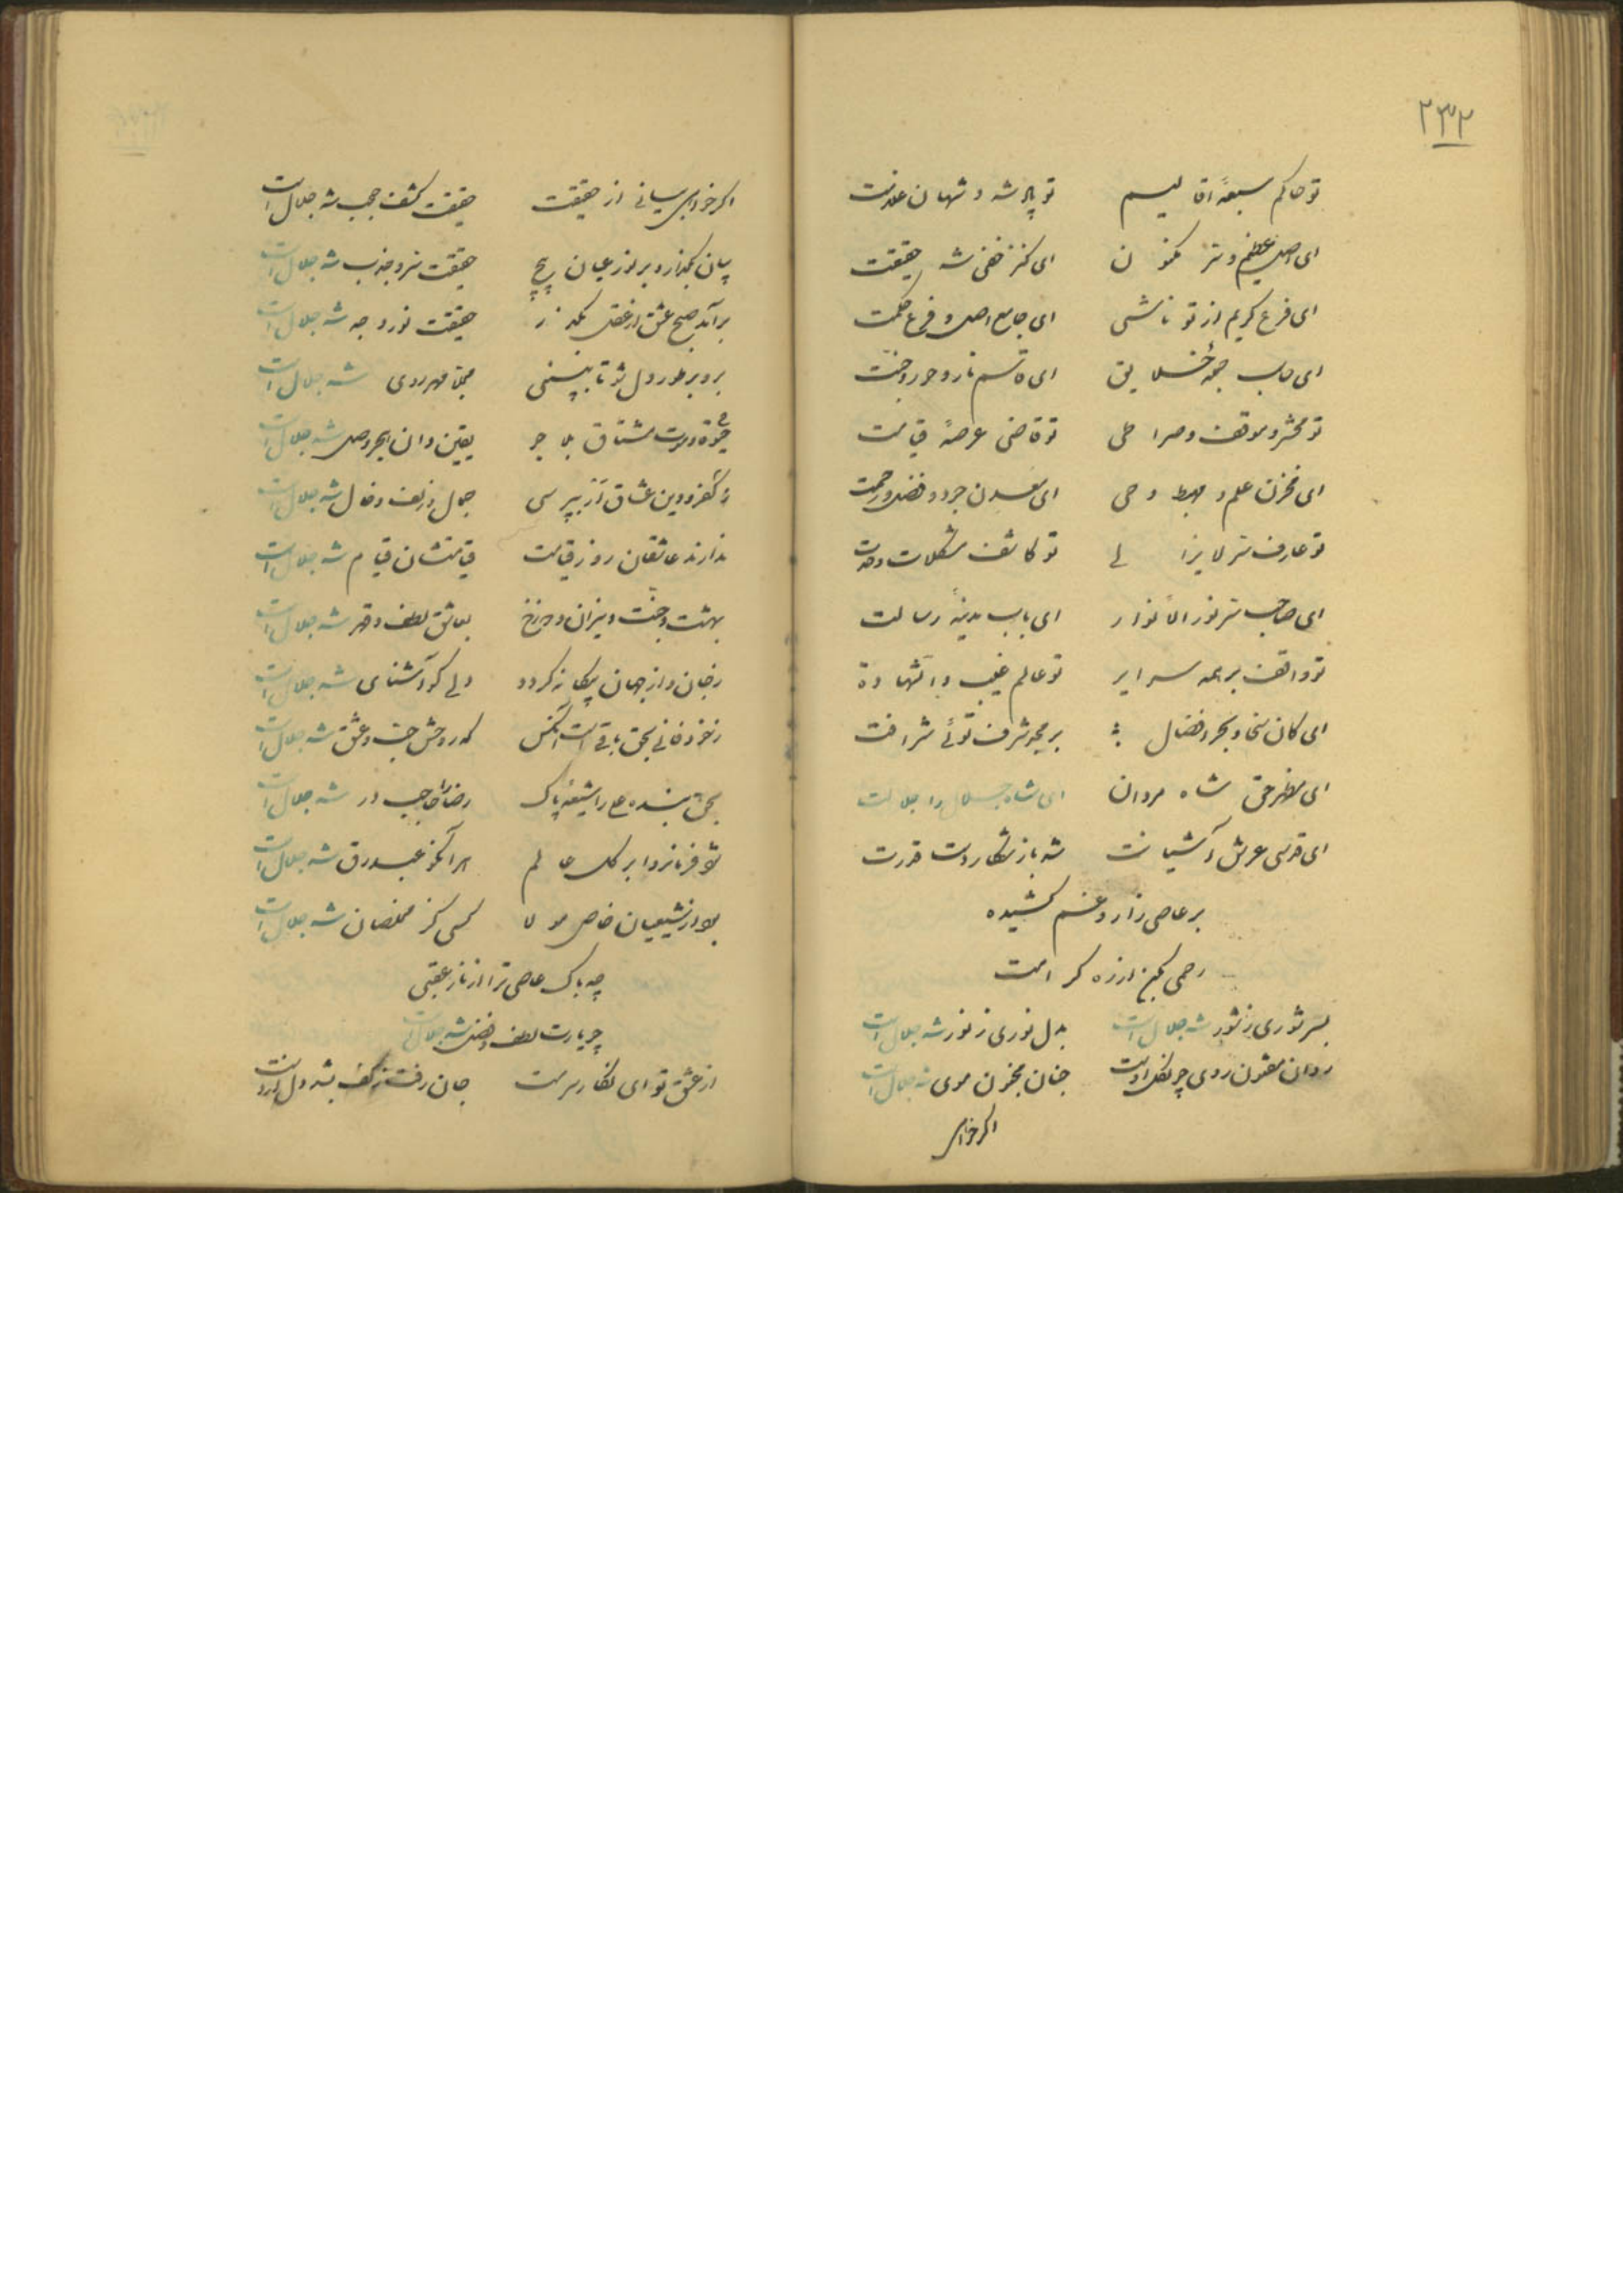 ۲۳۲
تو حاکم سبعهٔ اقالیم تو پادشه و شهان
ای اصل عظیم و سر مکنون ای کنز خفی شه حقیقت
ای فرع کریم از تو ناشی ای جامع اصل و فرع حکمت
ای حاسب جمله خلایق ای قاسم نار و حور و جنت
تو محشر و موقف و صراطی تو قاضی عرصهٔ قیامت
ای مخزن علم و مهبط وحی ای معدن جود و فضل و رحمت
تو عارف سر لایزالی تو کاشف مشکلات وحدت
ای صاحب سر نور الأنوار ای باب مدینهٔ رسالت
تو واقف بر همه سرایر تو عالم غیب والشهادة
ای کان سخا و بحر افضال بر مجد شرف توئی شرافت
ای مظهر حق شاه مردان ای شاه جلال و اجلالت
ای قدسی عرش آشیانت شه باز شکار دست قدرت
بر عاصی زار و غم کشیده
رحمی بکن از ره کرامت
بسر شوری ز شور شه جلال است بدل نوری ز نور شه جلال است
روان مفتون روی چون گل اوست جنان مخزن موی شه جلال است
اگر خواهی
اگر خواهی بیانی از حقیقت حقیقت کشف حجب شه جلال است
بیان بگذار و بر نور عیان پیچ حقیقت سر و جذب شه جلال است
برآمد صبح عشق از عقل بگذر حقیقت نور وجه شه جلال است
برو بر طور دل شو تا ببینی تجلا مهر روی شه جلال است
مشتاق بلا جو یقین دان بحر وصل شه جلال است
ز کفر و دین عشاق ار بپرسی جمال زلف و خال شه جلال است
ندارند عاشقان روز قیامت قیامتشان قیام شه جلال است
بهشت و جنت و میزان و دوزخ بعاشق لطف و قهر شه جلال است
ز جان و از جهان بیگانه گردد دلی کو آشنای شه جلال است
ز خود فانی بحق باقی است آنکس که روحش جذب و عشق شه جلال است
بحق بنده علی را شیعهٔ پاک رضا حاجب در شه جلال است
شو فرمانروا بر کل عالم هر آنکو عبد رق شه جلال است
بود از شیعیان خاص مولا کسی کز مخلصان شه جلال است
چه باک عاصی ترا از نار عقبی
چو یارت لطف و فضل شه جلال است
از عشق تو ای نگار سرمست جان رفت ز کف بشد دل از دست